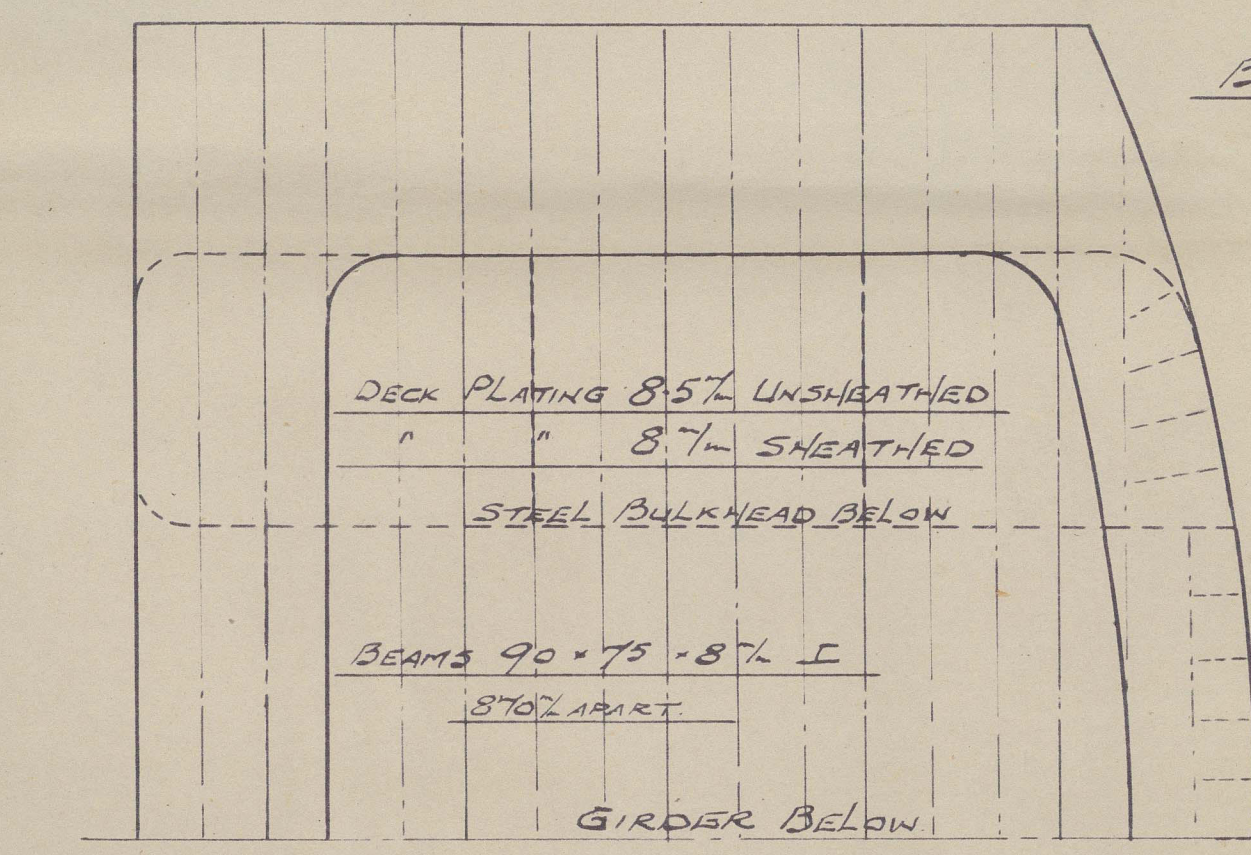 DECK PLATING 8.5 m/m UNSHEATHED
" " 8 m/m SHEATHED
STEEL BULKHEAD BELOW
BEAMS 90 × 75 × 8 m/m
870 m/m APART.
GIRDER BELOW